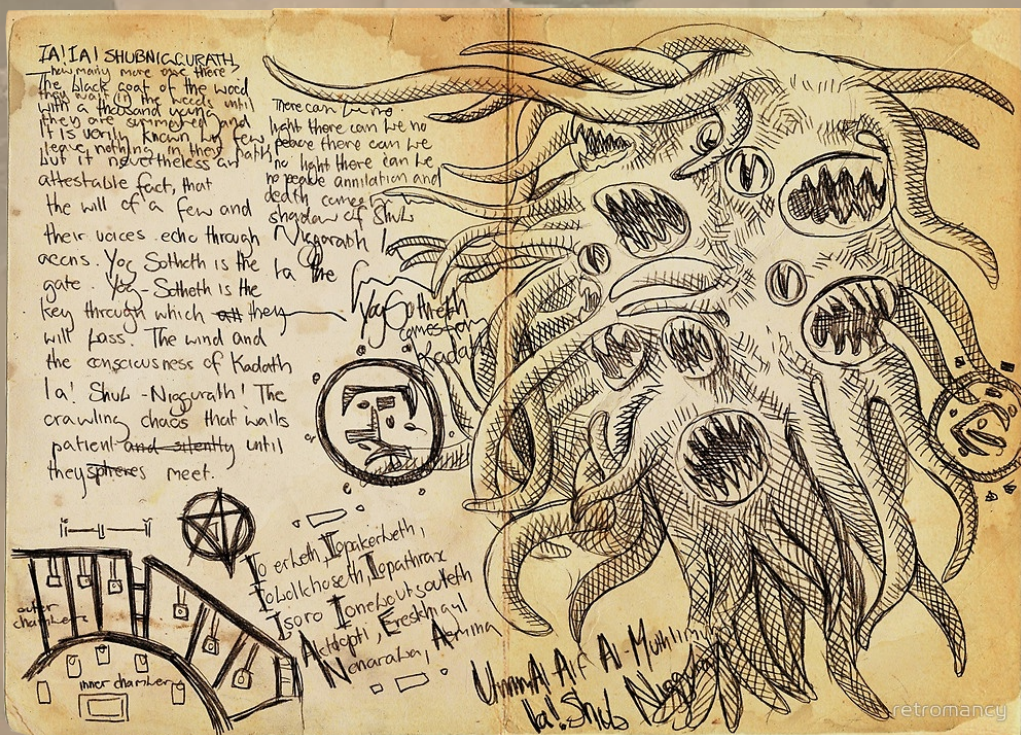 IA! IA! SHUBNIGGURATH,
how many more are there
The black goat of the wood
they wait in the weeds until
with a thousand young
they are summoned and
It is verily known by few
leave nothing in their path
but it nevertheless an
attestable fact, that
the will of a few and
their voices echo through
aeons. Yog Sotheth is the
gate. Yog-Sotheth is the
key through which they
will pass. The wind and
the consciousness of Kadath
Ia! Shub-Niggurath! The
crawling chaos that waits
patient and silently until
they spheres meet.
There can be no
light there can be no
peace there can be
no light there can be
no peace annilation and
death comes
shadow of Shub
Niggarath Ia
Ia the
Yog Sotheth
comes from
Kadath
outer
chambers
inner chamber
Io erketh, Iopakerketh,
Iobolkhoseth, Iopathrax
Isoro Ioneboutsouteth
Aktiopti, Ereskhigal
Nenaraba, Aemina
Ummal Alf Al-Muhlimin
Ia! Shub Niggurath
retromancy